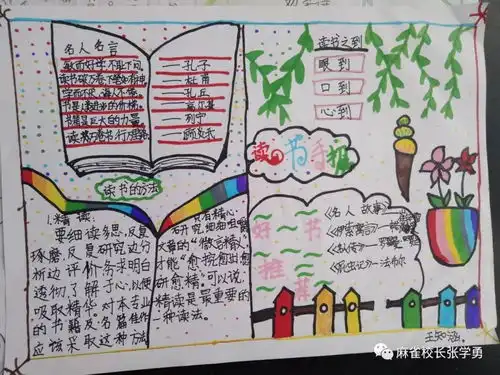 名人名言
敏而好学,不耻下问。
——孔子
读书破万卷下笔如有神。
——杜甫
学而不厌,诲人不倦。
——孔丘
书是人类进步的阶梯。
——高尔基
书籍是巨大的力量。
——列宁
读万卷书行万里路
——顾炎武
读书之到
眼到
口到
心到
读书手抄报
读书的方法
1.精读:
要细读多思,反复
琢磨,反复研究边分
析边评价,务求明白
透彻,了解于心,以便
吸取精华。对本专业
的书籍及名篇佳作
应该采取这种方法
只有精心
研究,细细咀嚼
文章的“微言精义”
才能“愈挖愈出愈
研愈精”可以说
精读是最重要的
一种读法。
好书
推荐
《名人故事》
《昆虫记》——法布尔
王知涵。
麻雀校长张学勇